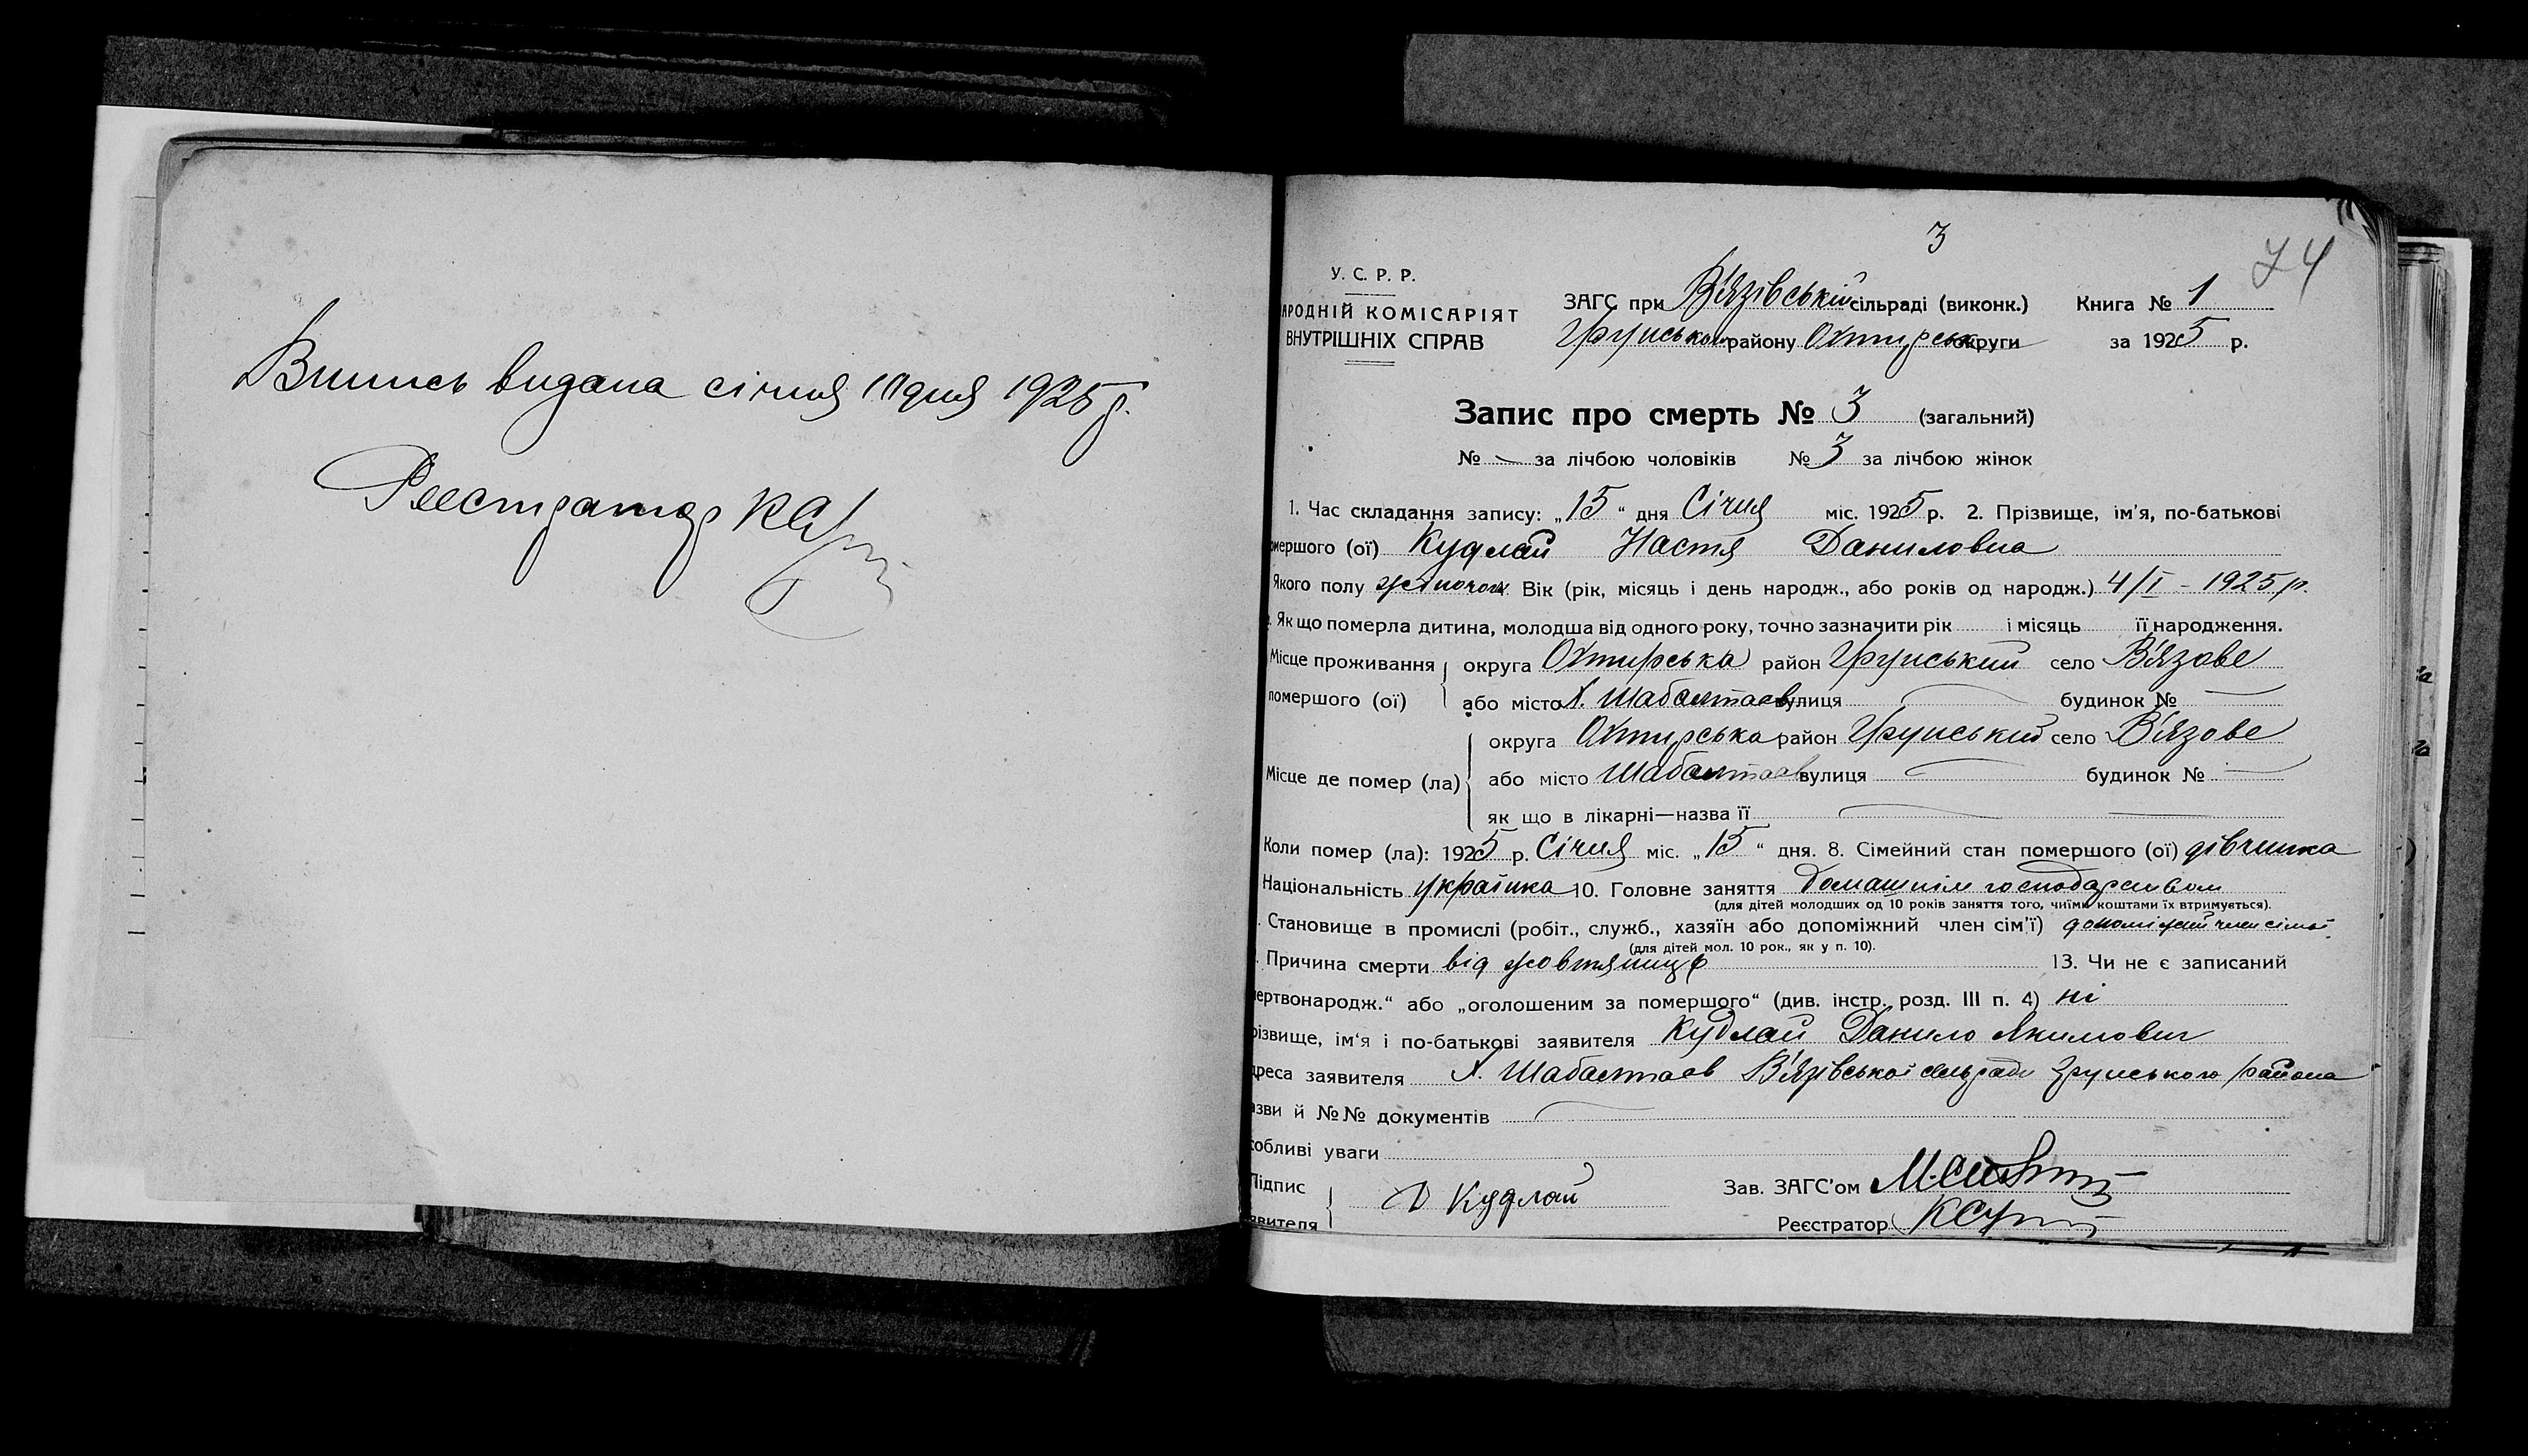 Випись видана січня дня 1925 р.
Реєстратор
3
74
У. С. Р. Р.
АРОДНІЙ КОМІСАРІЯТ
ВНУТРІШНІХ СПРАВ
ЗАГС при В'язівській сільраді (виконк.) Книга № 1
Грунського району Охтирськ округи за 1925 р.
Запис про смерть № 3 (загальний)
№ — за лічбою чоловіків № 3 за лічбою жінок
1. Час складання запису: „15" дня Січня міс. 1925 р. 2. Прізвище, ім'я, по-батькові
мершого (ої) Кудлай Настя Даниловна
Якого полу жіночої Вік (рік, місяць і день народж., або років од народж.) 4/I - 1925 р.
. Як що померла дитина, молодша від одного року, точно зазначити рік і місяць її народження.
Місце проживання округа Охтирська район Грунський село В'язове
помершого (ої) або місто Х. Шабалтаєв вулиця — будинок № —
округа Охтирська район Грунський село В'язове
Місце де помер (ла) або місто Шабалтаєв вулиця — будинок № —
як що в лікарні—назва її —
Коли помер (ла): 1925 р. Січня міс. „15" дня. 8. Сімейний стан помершого (ої) дівчинка
Національність українка 10. Головне заняття Домашнім господарством
(для дітей молодших од 10 років заняття того, чиїми коштами їх втримується).
. Становище в промислі (робіт., служб., хазяїн або допоміжний член сім'ї) допоміжний член сімьї
(для дітей мол. 10 рок., як у п. 10).
. Причина смерти від жовтяниці 13. Чи не є записаний
мертвонародж." або „оголошеним за помершого" (див. інстр. розд. III п. 4) ні
різвище, ім'я і по-батькові заявителя Кудлай Данило Якимович
дреса заявителя Х. Шабалтаєв В'язівської сельради Грунського района
азви й №№ документів —
собливі уваги
Підпис
явителя Д Кудлай
Зав. ЗАГС'ом
Реєстратор